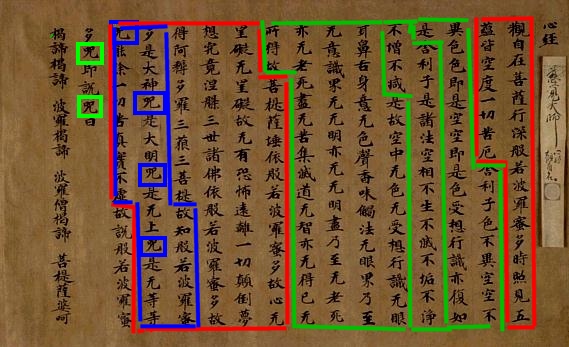 心経
觀自在菩薩行深般若波羅蜜多時照見五
蘊皆空度一切苦厄舍利子色不異空空不
異色色即是空空即是色受想行識亦復如
是舍利子是諸法空相不生不滅不垢不淨
不增不減是故空中无色无受想行識无眼
耳鼻舌身意无色聲香味觸法无眼界乃至
无意識界无无明亦无无明盡乃至无老死
亦无老死盡无苦集滅道无智亦无得已无
所得故菩提薩埵依般若波羅蜜多故心无
罣礙无罣礙故无有恐怖遠離一切顛倒夢
想究竟涅槃三世諸佛依般若波羅蜜多故
得阿耨多羅三藐三菩提故知般若波羅蜜
多是大神呪是大明呪是无上呪是无等等
呪能除一切苦真實不虛故說般若波羅蜜
多呪即說呪曰
揭諦揭諦 波羅揭諦 波羅僧揭諦 菩提薩婆呵